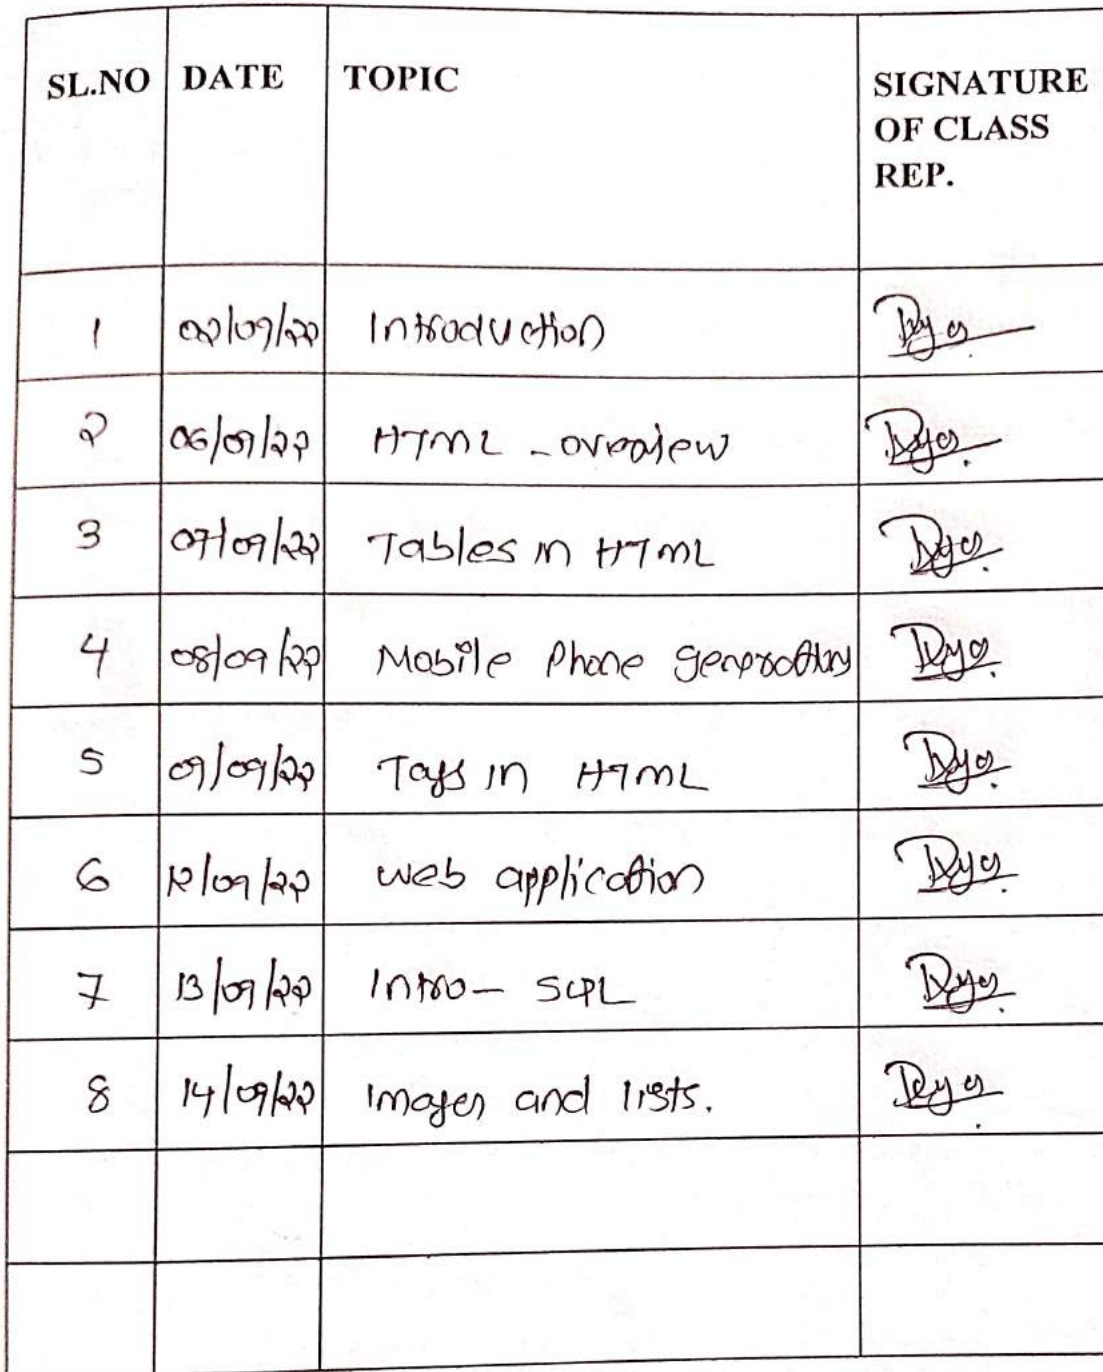 SL.NO DATE TOPIC SIGNATURE
OF CLASS
REP.
1 02/09/22 Introduction
2 06/09/22 HTML - overview
3 07/09/22 Tables in HTML
4 08/09/22 Mobile Phone generations
5 09/09/22 Tags in HTML
6 12/09/22 web application
7 13/09/22 Intro - SQL
8 14/09/22 Images and lists.